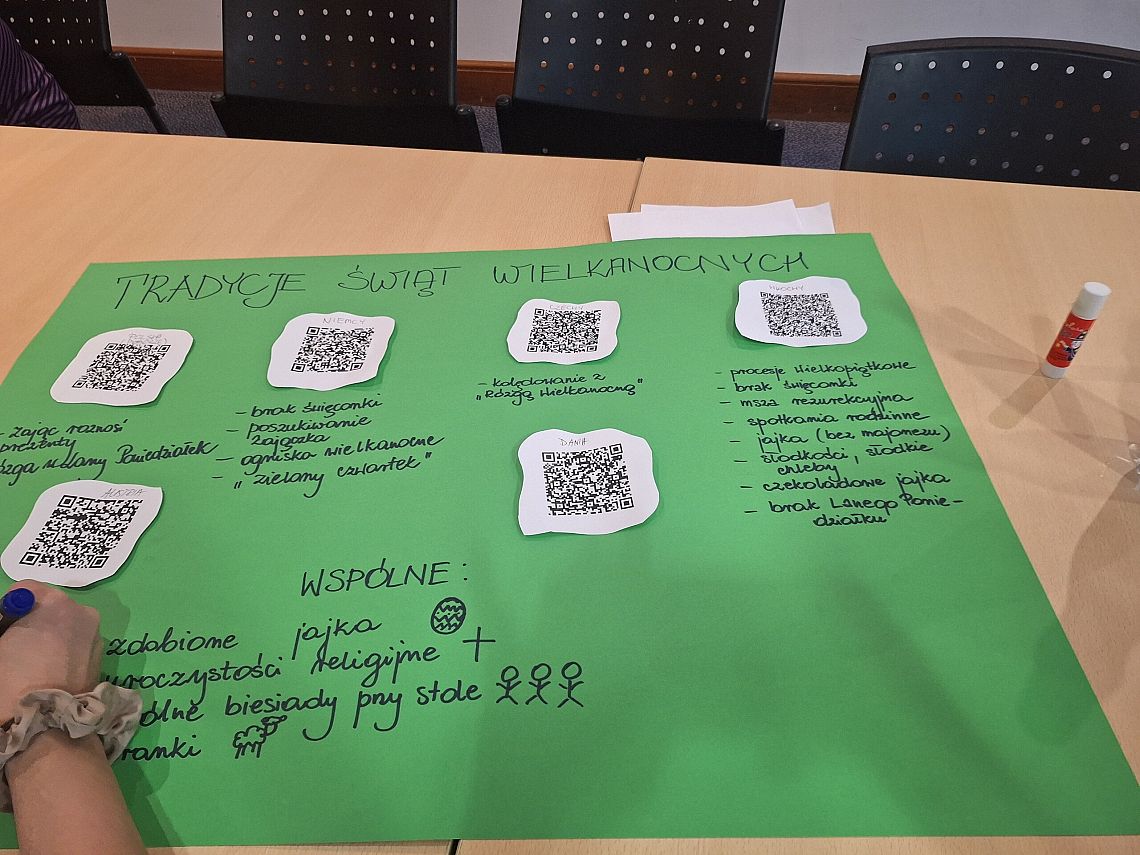 TRADYCJE ŚWIĄT WIELKANOCNYCH
NIEMCY
- brak święconki
- poszukiwanie
zajączka
- ogniska wielkanocne
- "zielony czwartek"
CZECHY
- kolędowanie z
"Rózgą Wielkanocną"
WŁOCHY
- procesje Wielkopiątkowe
- brak święconki
- msza rezurekcyjna
- spotkania rodzinne
- jajka (bez majonezu)
- słodkości, słodkie
chleby
- czekoladowe jajka
- brak Lanego Ponie-
działku
- zając roznosi
prezenty
rózga w Lany Poniedziałek
AUSTRIA
DANIA
WSPÓLNE:
zdobione jajka
uroczystości religijne
biesiady przy stole